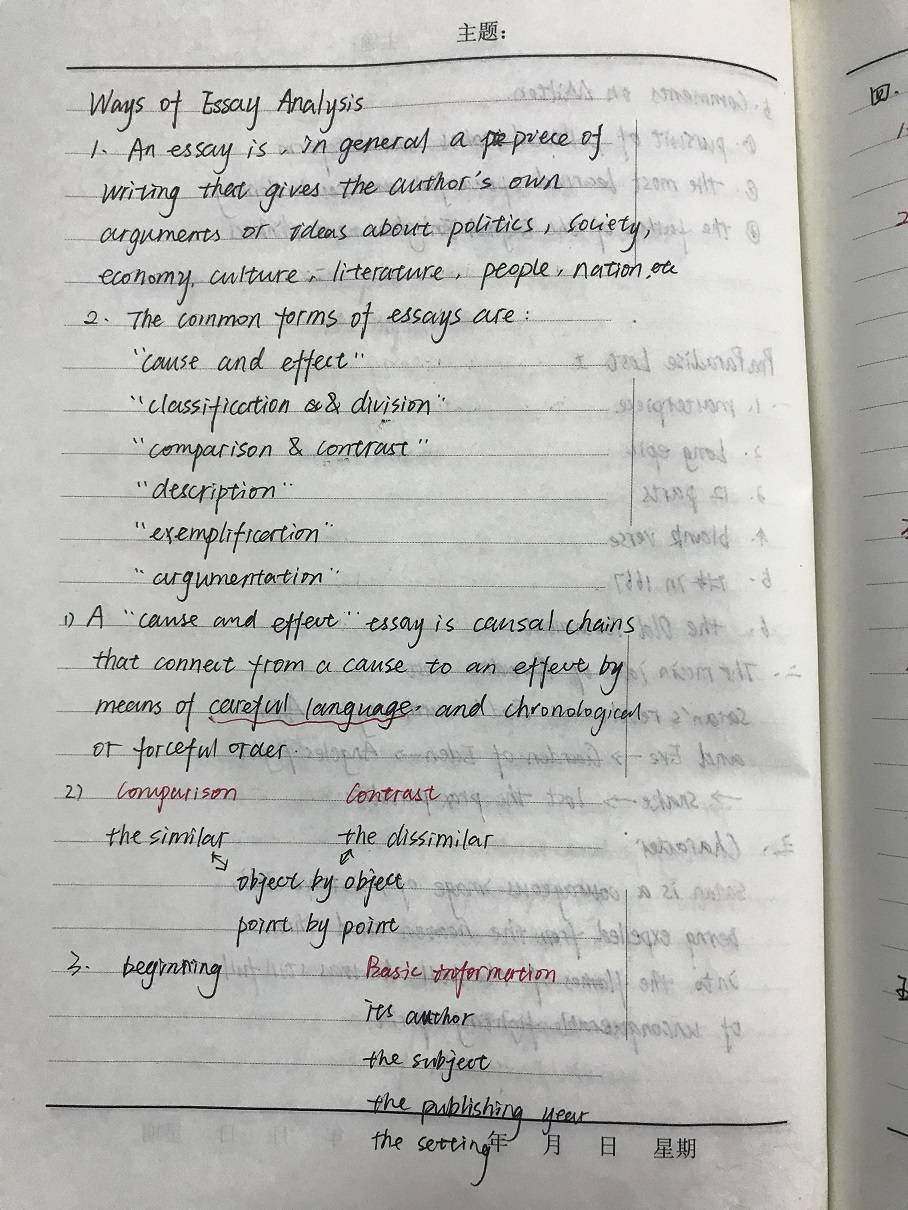 主题：
Ways of Essay Analysis
1. An essay is, in general a piece of
writing that gives the author's own
arguments or ideas about politics, society,
economy, culture, literature, people, nation, etc
2. The common forms of essays are:
"cause and effect"
"classification & division"
"comparison & contrast"
"description"
"exemplification"
"argumentation"
1) A "cause and effect" essay is causal chains
that connect from a cause to an effect by
means of careful language, and chronological
or forceful order.
2) Comparison Contrast
the similar the dissimilar
object by object
point by point
3. beginning Basic information
its author
the subject
the publishing year
the setting
年 月 日 星期
四.
1
2